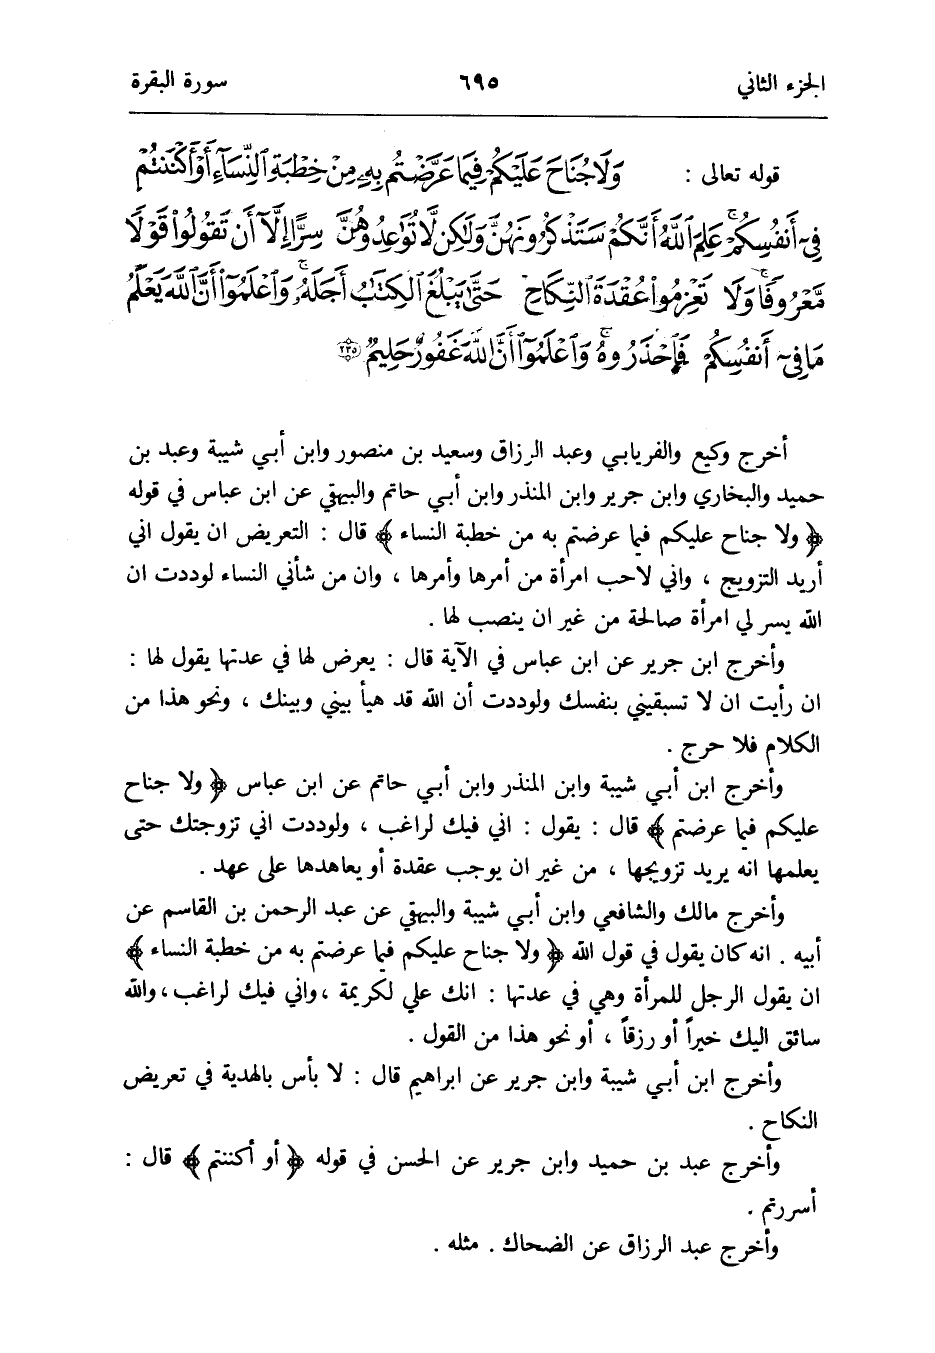 الجزء الثاني ٦٩٥ سورة البقرة
قوله تعالى : وَلَا جُنَاحَ عَلَيْكُمْ فِيمَا عَرَّضْتُم بِهِۦ مِنْ خِطْبَةِ ٱلنِّسَآءِ أَوْ أَكْنَنتُمْ
فِىٓ أَنفُسِكُمْ ۚ عَلِمَ ٱللَّهُ أَنَّكُمْ سَتَذْكُرُونَهُنَّ وَلَٰكِن لَّا تُوَاعِدُوهُنَّ سِرًّا إِلَّآ أَن تَقُولُوا۟ قَوْلًا
مَّعْرُوفًا ۚ وَلَا تَعْزِمُوا۟ عُقْدَةَ ٱلنِّكَاحِ حَتَّىٰ يَبْلُغَ ٱلْكِتَٰبُ أَجَلَهُۥ ۚ وَٱعْلَمُوٓا۟ أَنَّ ٱللَّهَ يَعْلَمُ
مَا فِىٓ أَنفُسِكُمْ فَٱحْذَرُوهُ ۚ وَٱعْلَمُوٓا۟ أَنَّ ٱللَّهَ غَفُورٌ حَلِيمٌ ٢٣٥
أخرج وكيع والفريابي وعبد الرزاق وسعيد بن منصور وابن أبي شيبة وعبد بن
حميد والبخاري وابن جرير وابن المنذر وابن أبي حاتم والبيهقي عن ابن عباس في قوله
﴿ ولا جناح عليكم فيما عرضتم به من خطبة النساء ﴾ قال : التعريض ان يقول اني
أريد التزويج ، واني لاحب امرأة من أمرها وأمرها ، وان من شأني النساء لوددت ان
الله يسر لي امرأة صالحة من غير ان ينصب لها .
وأخرج ابن جرير عن ابن عباس في الآية قال : يعرض لها في عدتها يقول لها :
ان رأيت ان لا تسبقيني بنفسك ولوددت أن الله قد هيأ بيني وبينك ، ونحو هذا من
الكلام فلا حرج .
وأخرج ابن أبي شيبة وابن المنذر وابن أبي حاتم عن ابن عباس ﴿ ولا جناح
عليكم فيما عرضتم ﴾ قال : يقول : اني فيك لراغب ، ولوددت اني تزوجتك حتى
يعلمها انه يريد تزويجها ، من غير ان يوجب عقدة أو يعاهدها على عهد .
وأخرج مالك والشافعي وابن أبي شيبة والبيهقي عن عبد الرحمن بن القاسم عن
أبيه . انه كان يقول في قول الله ﴿ ولا جناح عليكم فيما عرضتم به من خطبة النساء ﴾
ان يقول الرجل للمرأة وهي في عدتها : انك علي لكريمة ، واني فيك لراغب ، والله
سائق اليك خيراً أو رزقاً ، أو نحو هذا من القول .
وأخرج ابن أبي شيبة وابن جرير عن ابراهيم قال : لا بأس بالهدية في تعريض
النكاح .
وأخرج عبد بن حميد وابن جرير عن الحسن في قوله ﴿ أو أكننتم ﴾ قال :
أسررتم .
وأخرج عبد الرزاق عن الضحاك . مثله .